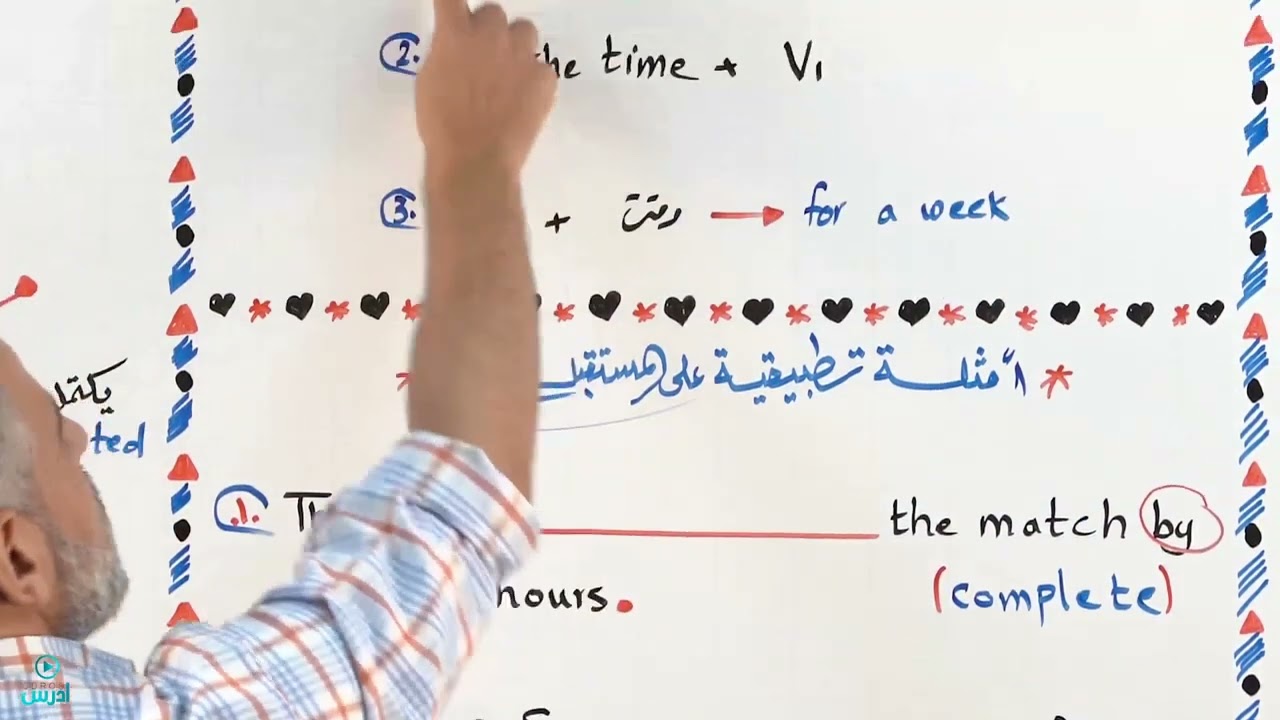 2. the time + V1
3. + وقت → for a week
* أمثلة تطبيقية على المستقبل *
يكتمل
ted
1. the match by
hours. (complete)
ادرس